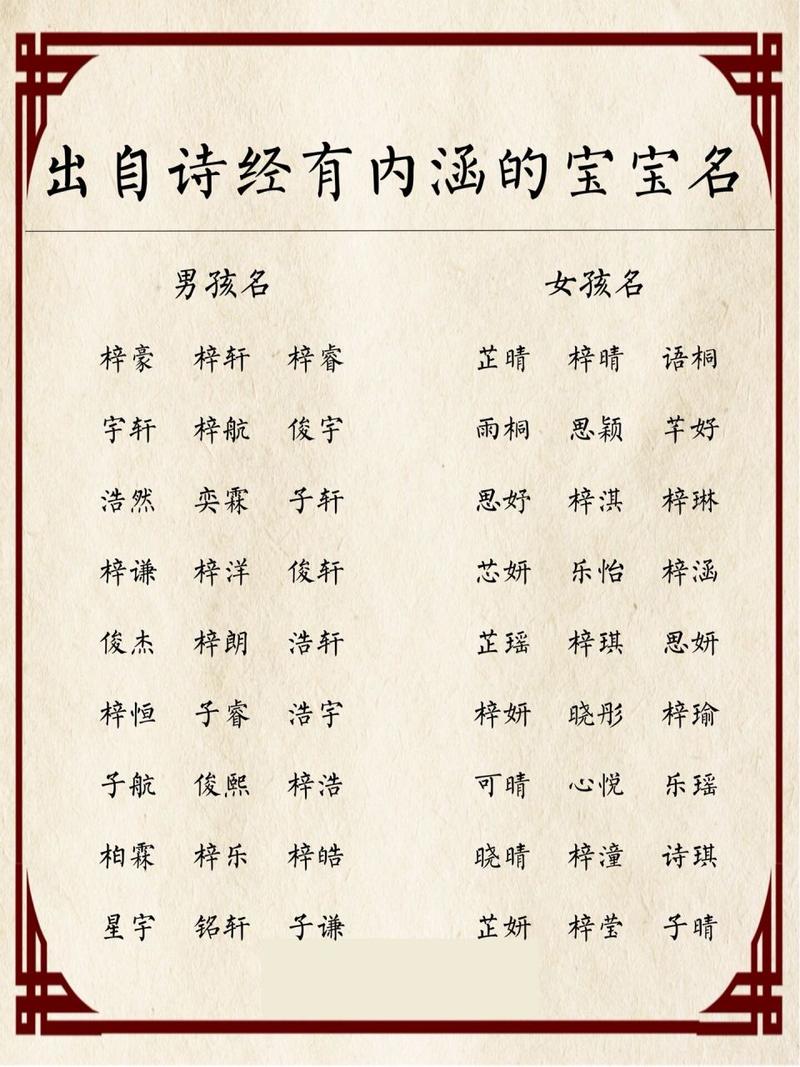 出自诗经有内涵的宝宝名
男孩名 女孩名
梓豪 梓轩 梓睿 芷晴 梓晴 语桐
宇轩 梓航 俊宇 雨桐 思颖 芊好
浩然 奕霖 子轩 思妤 梓淇 梓琳
梓谦 梓洋 俊轩 芯妍 乐怡 梓涵
俊杰 梓朗 浩轩 芷瑶 梓琪 思妍
梓恒 子睿 浩宇 梓妍 晓彤 梓瑜
子航 俊熙 梓浩 可晴 心悦 乐瑶
柏霖 梓乐 梓皓 晓晴 梓潼 诗琪
星宇 铭轩 子谦 芷妍 梓莹 子晴